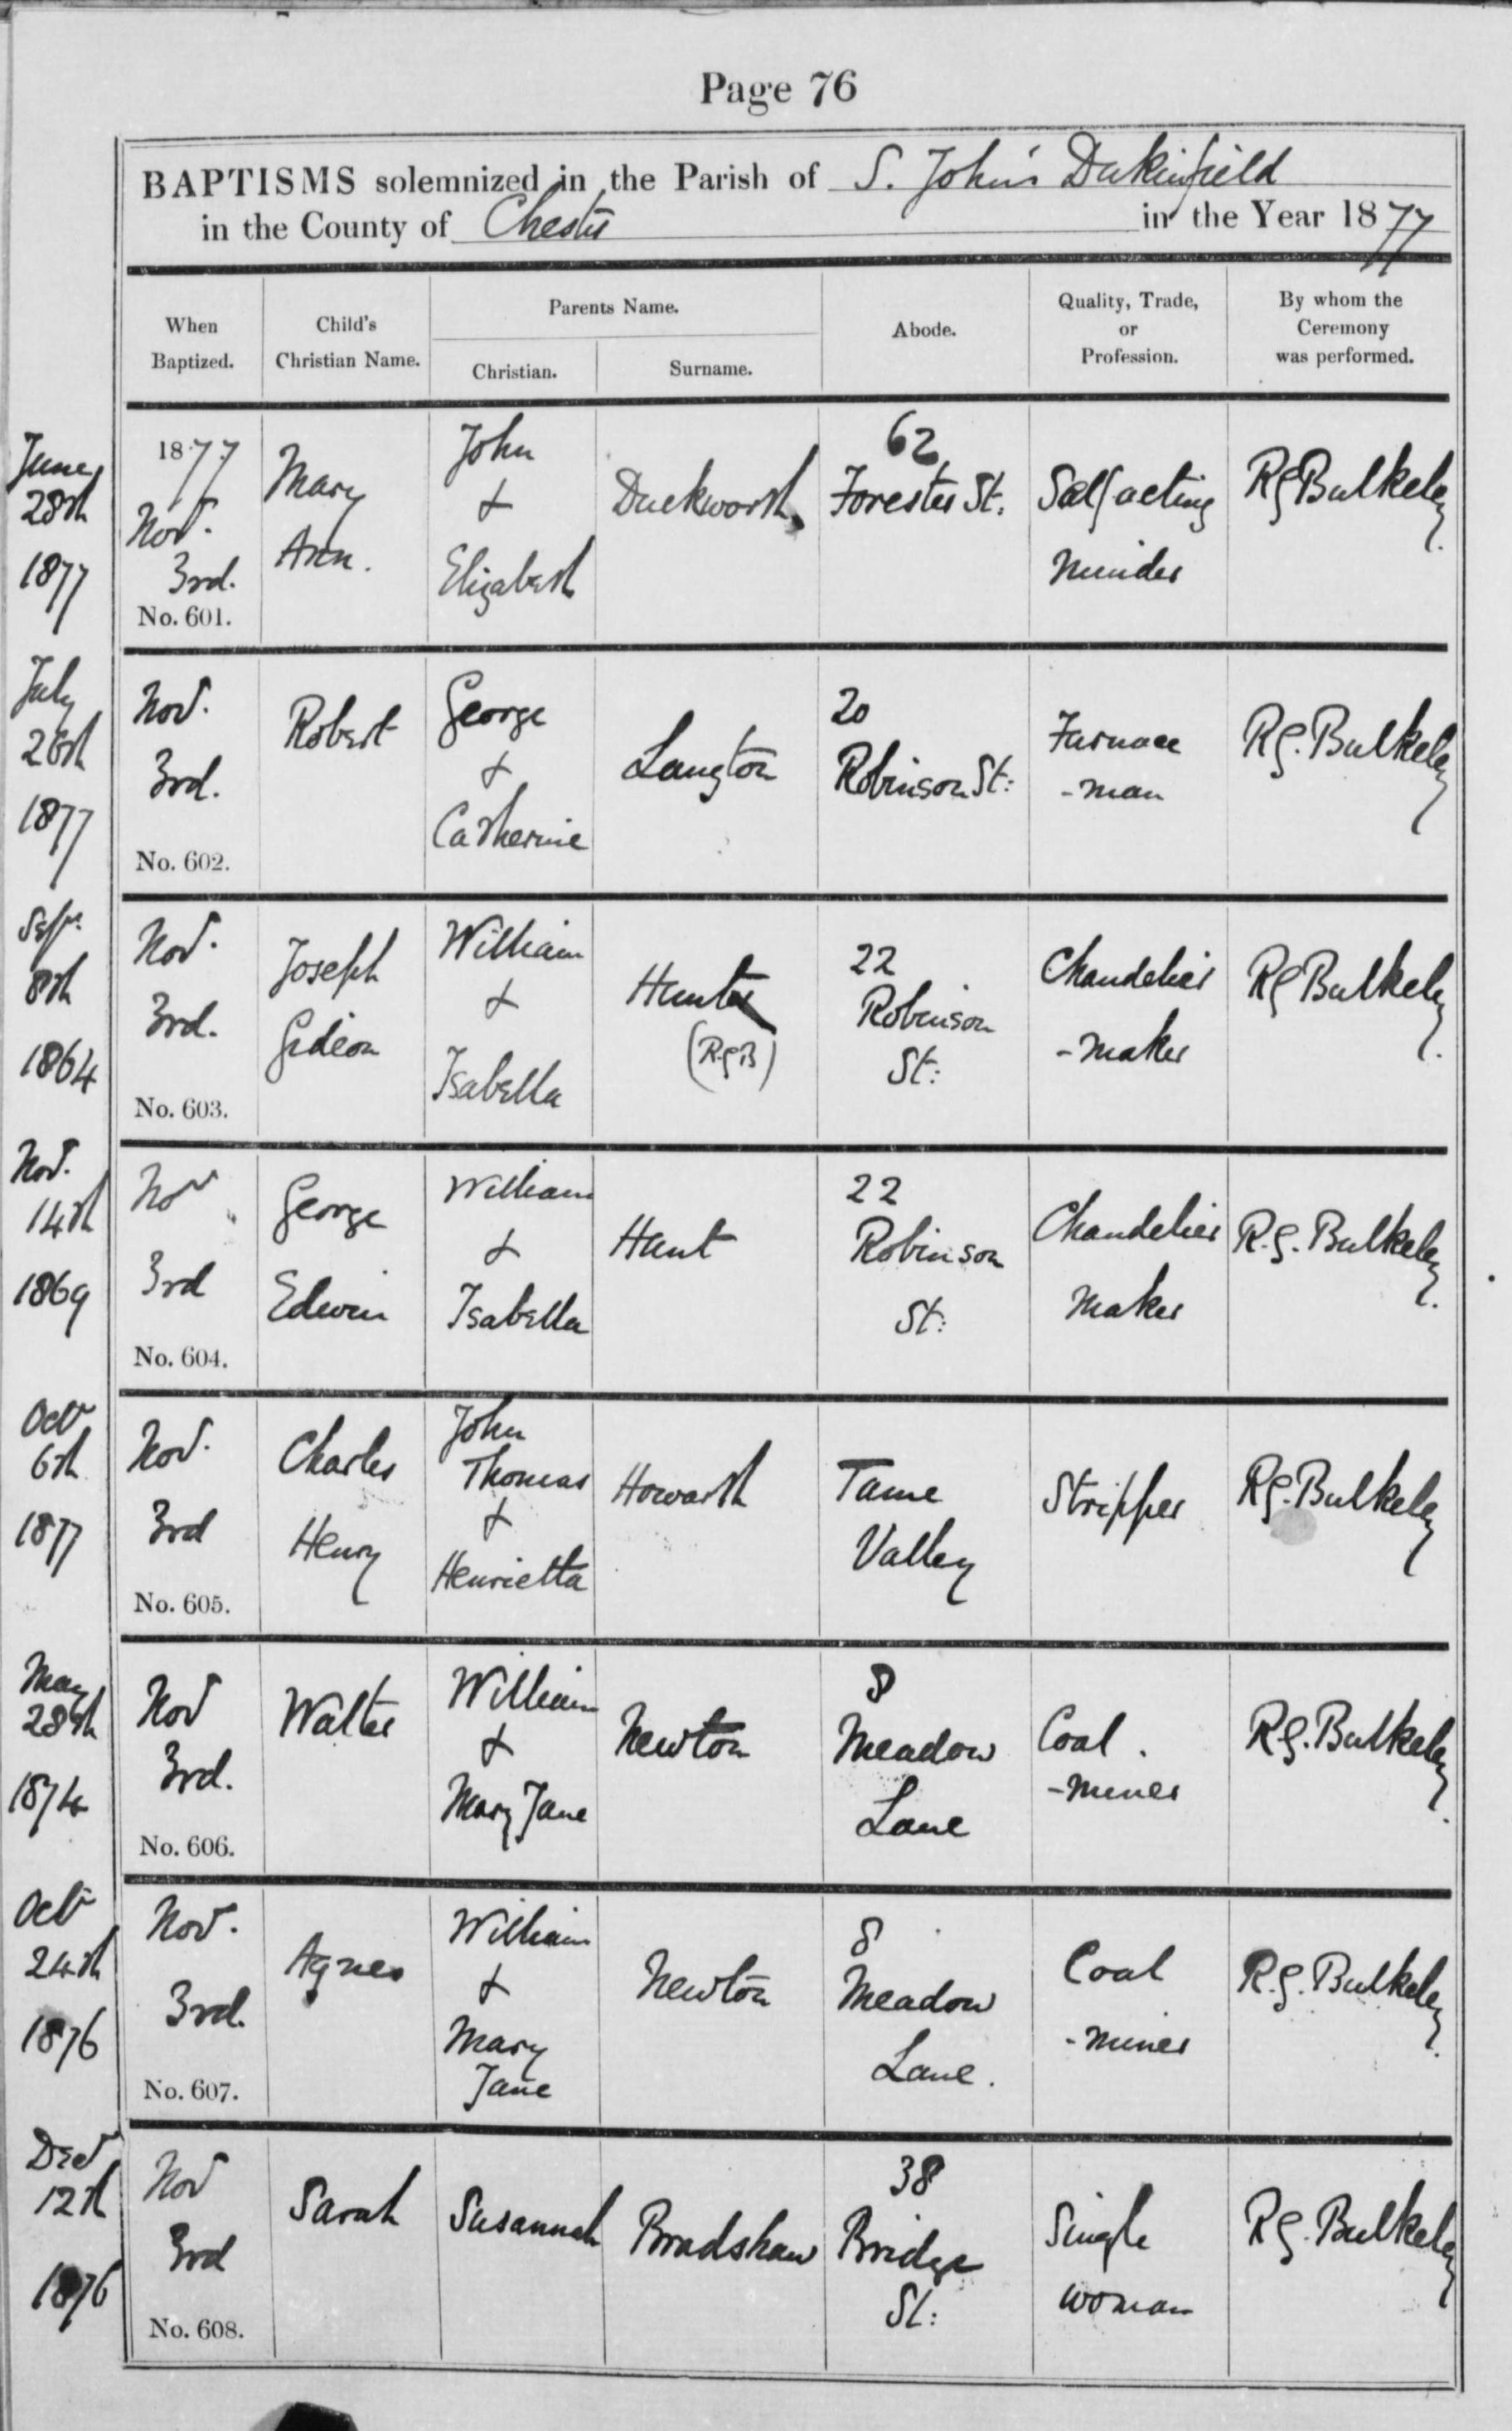 Page 76
BAPTISMS solemnized in the Parish of S. John's Dukinfield
in the County of Chester in the Year 1877
When
Baptized.
Child's
Christian Name.
Parents Name.
Christian.
Surname.
Abode.
Quality, Trade,
or
Profession.
By whom the
Ceremony
was performed.
June
28th
1877
1877
Nov.
3rd.
No. 601.
Mary
Ann.
John
+
Elizabeth
Duckworth
62
Forester St.
Self acting
minder
RGBulkeley.
July
26th
1877
Nov.
3rd.
No. 602.
Robert
George
+
Catherine
Langton
20
Robinson St:
Furnace
-man
RG. Bulkeley
Sept.
8th
1864
Nov.
3rd.
No. 603.
Joseph
Gideon
William
+
Isabella
Hunter
(RGB)
22
Robinson
St:
Chandelier
-maker
RG Bulkeley.
Nov.
14th
1869
Nov
3rd
No. 604.
George
Edwin
William
+
Isabella
Hunt
22
Robinson
St:
Chandelier
Maker
R.G. Bulkeley.
Oct
6th
1877
Nov.
3rd
No. 605.
Charles
Henry
John
Thomas
+
Henrietta
Howarth
Tame
Valley
Stripper
RG. Bulkeley
May
28th
1874
Nov
3rd.
No. 606.
Walter
William
+
Mary Jane
Newton
8
Meadow
Lane
Coal
-miner
RG. Bulkeley.
Oct
24th
1876
Nov.
3rd.
No. 607.
Agnes
William
+
Mary
Jane
Newton
8
Meadow
Lane.
Coal
-miner
R.G. Bulkeley.
Dec
12th
1876
Nov
3rd
No. 608.
Sarah
Susannah
Bradshaw
38
Bridge
St:
Single
woman
RG. Bulkeley